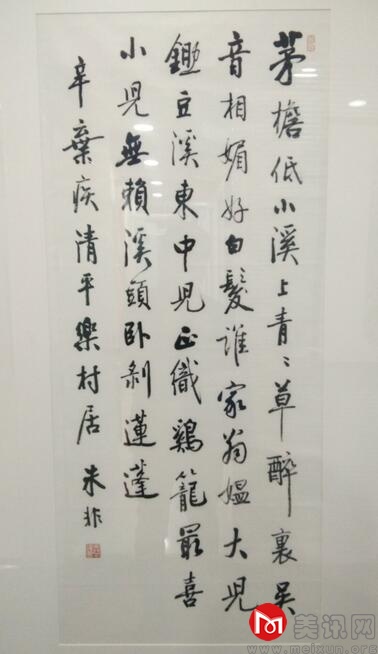 茅檐低小溪上青〻草醉裏吴
音相媚好白髪誰家翁媪大兒
鋤豆溪東中兒正織鷄籠最喜
小兒無賴溪頭卧剥蓮蓬
辛棄疾清平樂村居 朱非
美讯网
www.meixun.org